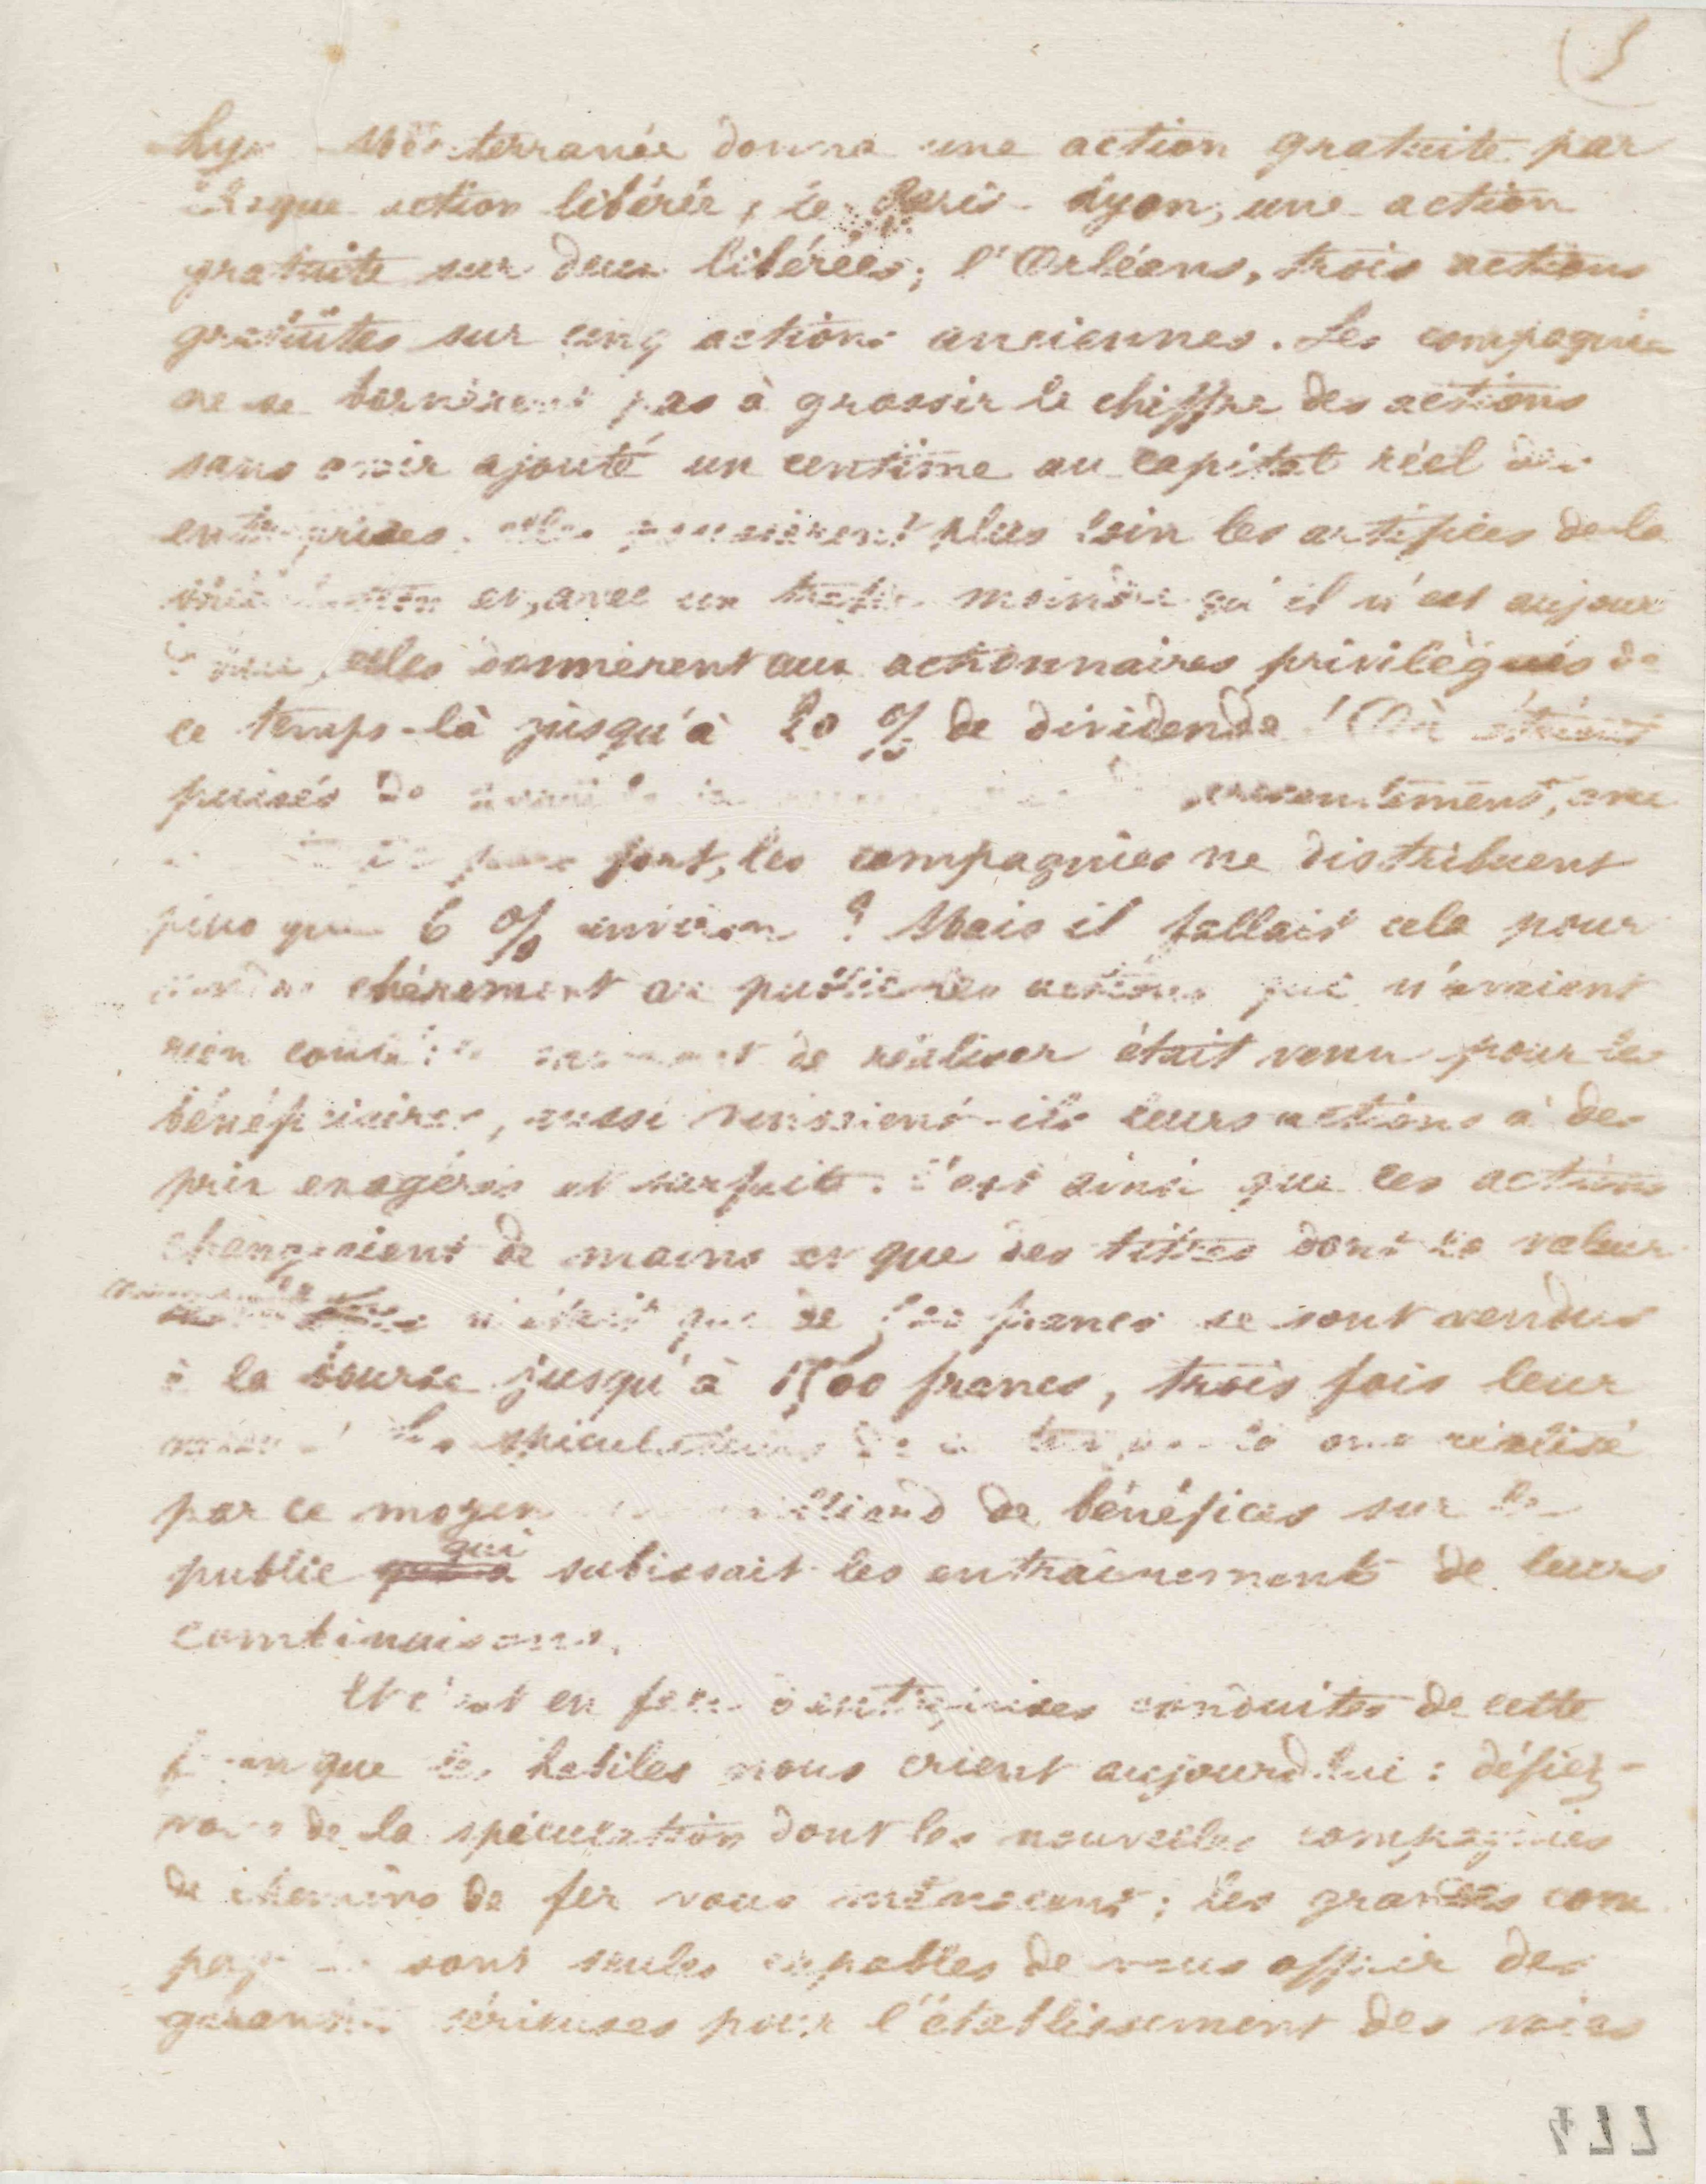 (5
Lyon-Méditerranée donna une action gratuite par
chaque action libérée, le Paris-Lyon, une action
gratuite sur deux libérées; l'Orléans, trois actions
gratuites sur cinq actions anciennes. Les compagnies
ne se bornèrent pas à grossir le chiffre des actions
sans avoir ajouté un centime au capital réel des
entreprises. elles poussèrent plus loin les artifices de la
spéculation et, avec un trafic moindre qu'il n'est aujour
d'hui, elles donnèrent aux actionnaires privilégiés de
ce temps-là jusqu'à 20 % de dividende! Où étaient
puisés de
font, les compagnies ne distribuent
plus que 6 % environ? Mais il fallait cela pour
vendre chèrement au public les actions qui n'avaient
rien coûté: le moment de réaliser était venu pour les
bénéficiaires, aussi vendaient-ils leurs actions à des
prix exagérés et surfaits. C'est ainsi que les actions
changeaient de mains et que des titres dont la valeur
n'était que de 500 francs se sont vendus
à la bourse jusqu'à 1500 francs, trois fois leur
valeur! Les spéculateurs de ce temps-là ont réalisé
par ce moyen milliard de bénéfices sur le
public qui subissait les entraînements de leurs
combinaisons.
Et c'est en face d'entreprises conduites de cette
façon que les habiles nous crient aujourd'hui: défiez-
vous de la spéculation dont les nouvelles compagnies
de chemins de fer vous menacent; les grandes com
pagnies sont seules capables de vous offrir des
garanties sérieuses pour l'établissement des voies
477